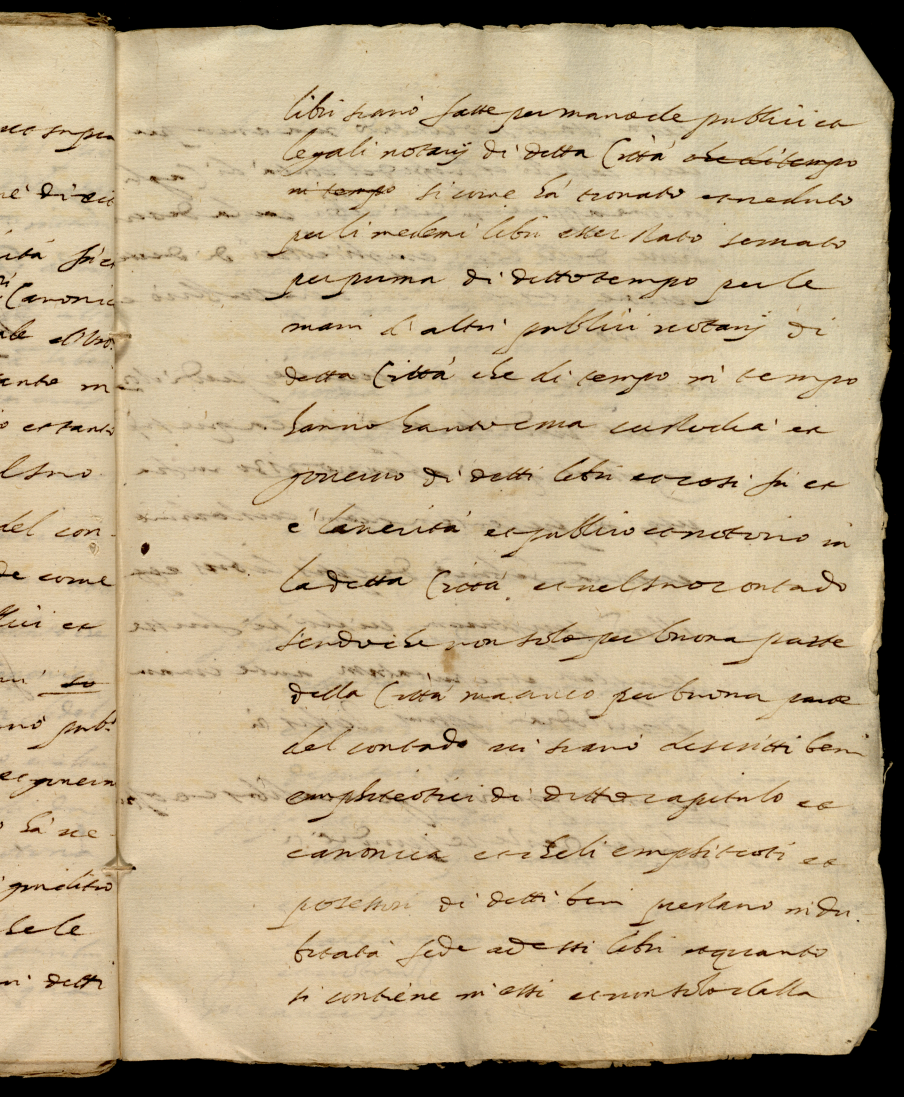 libri siano fatte per mano de publici et
legali notarij di detta Città che di tempo
in tempo si come hà trovato et veduto
per li medemi libri esser stato servato
per prima di detto tempo per le
mani d'altri publici notarij di
detta Città che di tempo in tempo
hanno havuto cura custodia et
governo di detti libri et così fù et
è la verità et publico et notorio in
la detta Città, et nel suo contado
sendoche non solo per buona parte
della Città ma anco per buona parte
del contado vi siano descritti beni
emphiteotici di detto capitulo et
canonica et che li emphiteoti et
possessori di detti beni prestano indu-
bitata fede ad essi libri et quanto
si contiene in essi et non solo dalla
del con-
de come
et
so
pub.
et govern
hà ve-
che le
detti